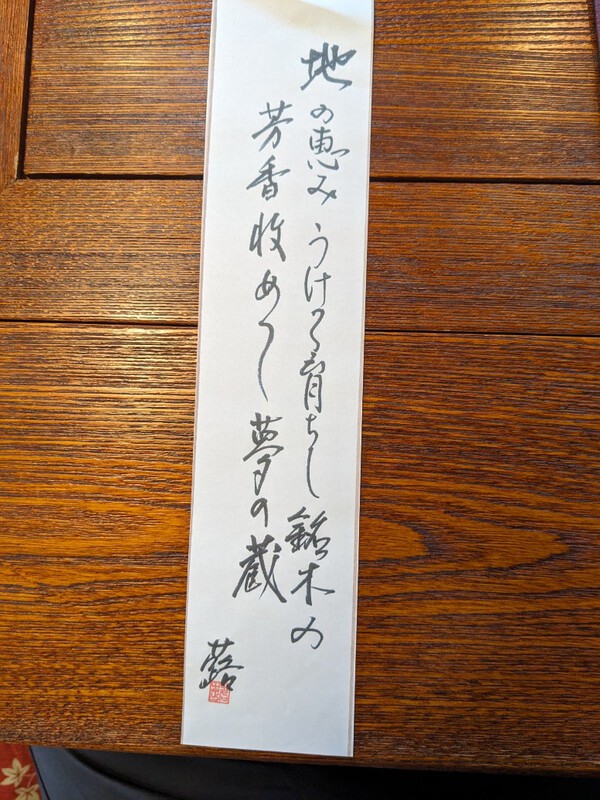 地の恵みうけて育ちし銘木の
芳香收めてし夢の蔵